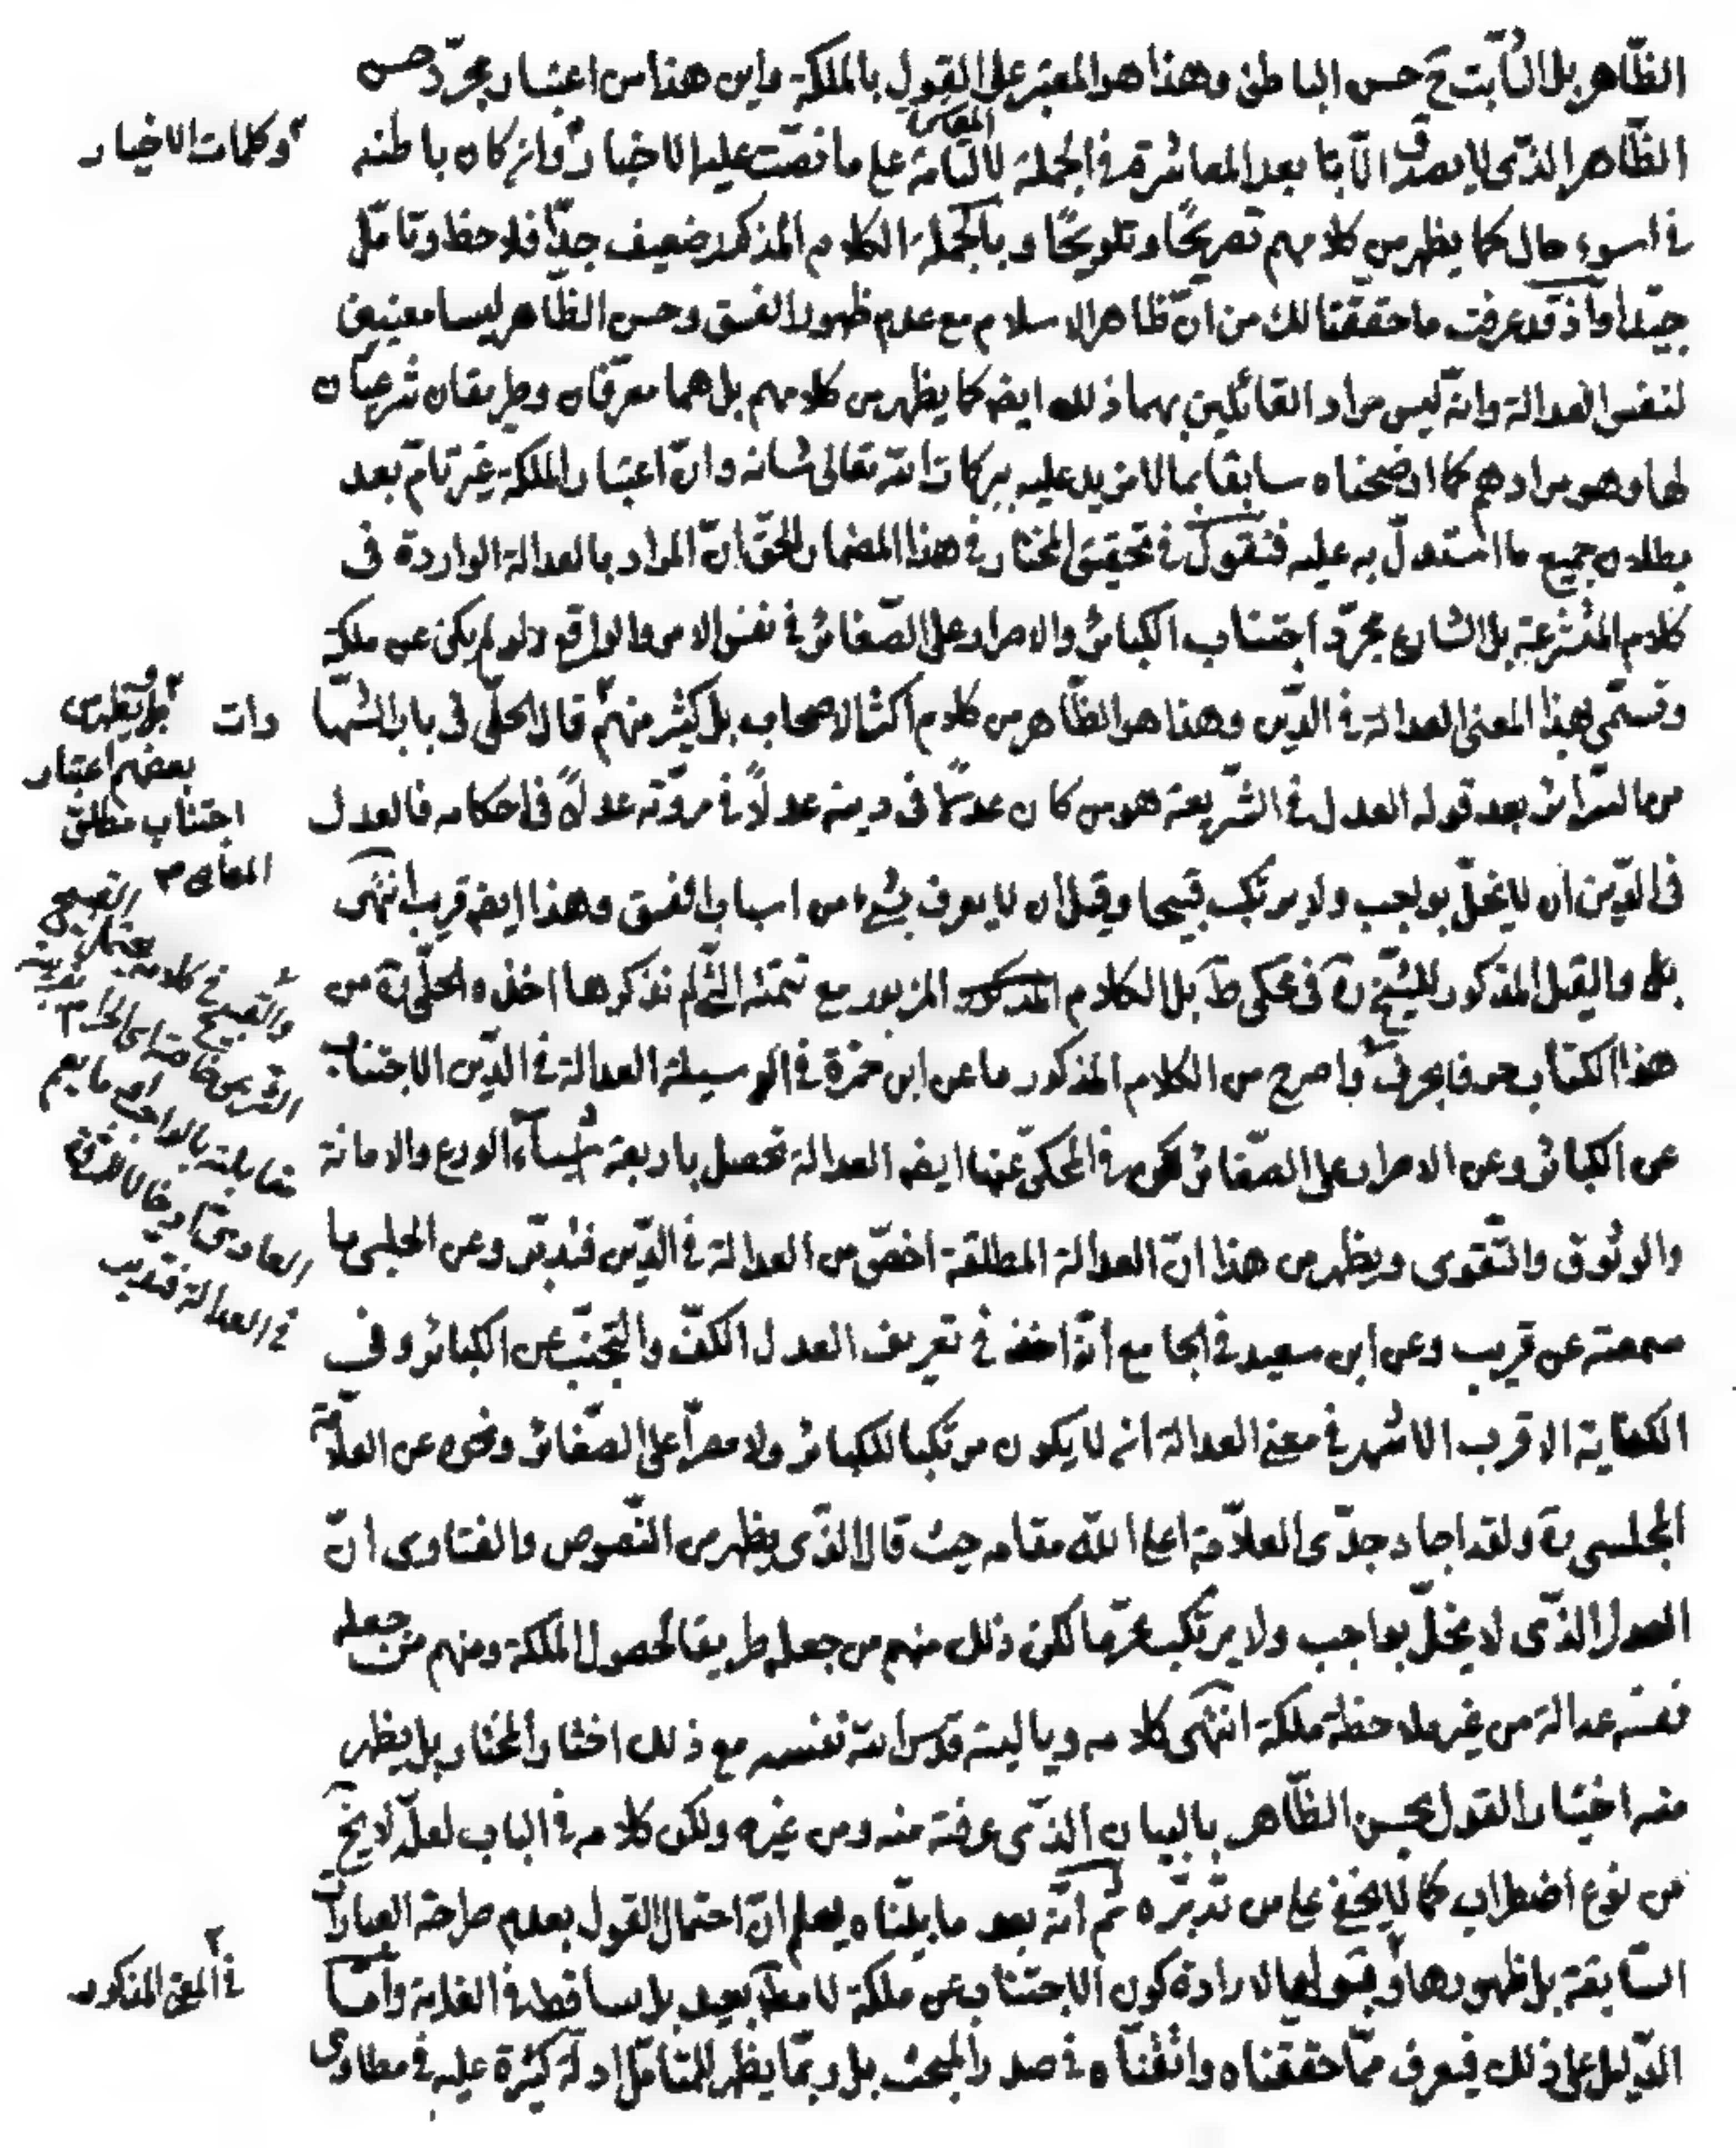 الظّاهر بل الثّابت ح حسن الباطن وهذا هو المعتبر على القول بالملكة واين هذا من اعتبار مجرّد حسن
الظّاهر الذّى لا يصدق الّا بتا بعد المعاشرة فى الجملة لا التّامة على ما نصّت عليه الاخبار وان كان باطنه
المعاشرة
وكلمات الاخيار
فى اسوء حال كما يظهر من كلامهم تصريحًا وتلويحًا وبالجملة الكلام المذكور ضعيف جدّا فلاحظ وتامّل
جيّدا واذ قد عرفت ما حققنا لك من انّ ظاهر الاسلام مع عدم ظهور الفسق وحسن الظّاهر ليسا معنيين
لنفس العدالة وانّه ليس مراد القائلين بهما ذلك ايضا كما يظهر من كلامهم بل هما معرّفان وطريقان شرعيّان
لها وهو مرادهم كما اوضحناه سابقا بما لا مزيد عليه ببركات الله تعالى شانه وانّ اعتبار الملكة غير تامّ بعد
بطلان جميع ما استدلّ به عليه فنقول فى تحقيق المختار فى هذا المضمار الحقّ انّ المراد بالعدالة الواردة فى
كلام المتشرعة بل الشارع مجرّد اجتناب الكبائر والاصرار على الصّغائر فى نفس الامر والواقع ولو لم يكن عن ملكة
وتسمّى بهذا المعنى العدالة فى الدّين وهذا هو الظّاهر من كلام اكثر الاصحاب بل كثير منهم قال الحلّى فى باب الشّها
دات
بل يظهر من
بعضهم اعتبار
اجتناب مطلق
المعاصى
من السّرائر بعد قوله العدل فى الشّريعة هو من كان عدلًا فى دينه عدلًا فى مروّته عدلًا فى احكامه فالعدل
فى الدّين ان لا يخلّ بواجب ولا يرتكب قبيحا وقيل ان لا يعرف بشىء من اسباب الفسق وهذا ايضا قريب انتهى
بل والقيل المذكور للشّيخ ره فى محكى ط بل الكلام المزبور مع تتمّته الّتى لم نذكرها اخذه الحلّى ره من
هذا الكتاب حرفا بحرف واصرح من الكلام المذكور ما عن ابن حمزة فى الوسيلة العدالة فى الدّين الاجتناب
عن الكبائر وعن الاصرار على الصّغائر لكن فى المحكّى عنها ايضا العدالة تحصل باربعة اشياء الورع والامانة
والوثوق والتّقوى ويظهر من هذا انّ العدالة المطلقة اخصّ من العدالة فى الدّين فتدبّر وعن الحلبى ما
والقبيح فى كلامه يحتمل القبيح
الشرعى خاصّة اى الحرام بقرينة
مقابلته بالواجب او ما يعم
العادى
فى العدالة فتدبر
سمعته عن قريب وعن ابن سعيد فى الجامع انّه اخذ فى تعريف العدل الكفّ والتّجنّب عن الكبائر وفى
الكفاية الاقرب الاشهر فى معنى العدالة انه لا يكون مرتكبا للكبائر ولا مصرّا على الصّغائر ونحوه عن العلّامة
المجلسى ره ولقد اجاد جدّى العلّامة اعلى اللّه مقامه حيث قال الذّى يظهر من النّصوص والفتاوى انّ
العدل الذّى لا يخلّ بواجب ولا يرتكب محرّما لكن ذلك منهم من جعله طريقا لحصول الملكة ومنهم من جعله
نفسه عدالة من غير ملاحظة ملكة انتهى كلامه ويا ليته قدّس اللّه نفسه مع ذلك اختار المختار بل يظهر
منه اختيار القول بحسن الظّاهر بالبيان الذّى عرفته منه ومن غيره ولكن كلامه فى الباب لعلّه لا يخ
من نوع اضطراب كما لا يخفى على من تدبّره ثم انّه بعد ما بيّنّاه يعلم انّ احتمال القول بعدم صراحة العبارات
السّابقة بل ظهورها وقبولها لارادة كون الاجتناب عن ملكة لا مطلقا بعيد بل ساقط فى الغاية وامّا
فى المعنى المذكور
الدّليل على ذلك فيعرف ممّا حققناه واتقنّاه فى صدر المبحث بل ربمّا يظهر للمتامّل ادلّة كثيرة عليه فى مطاوى